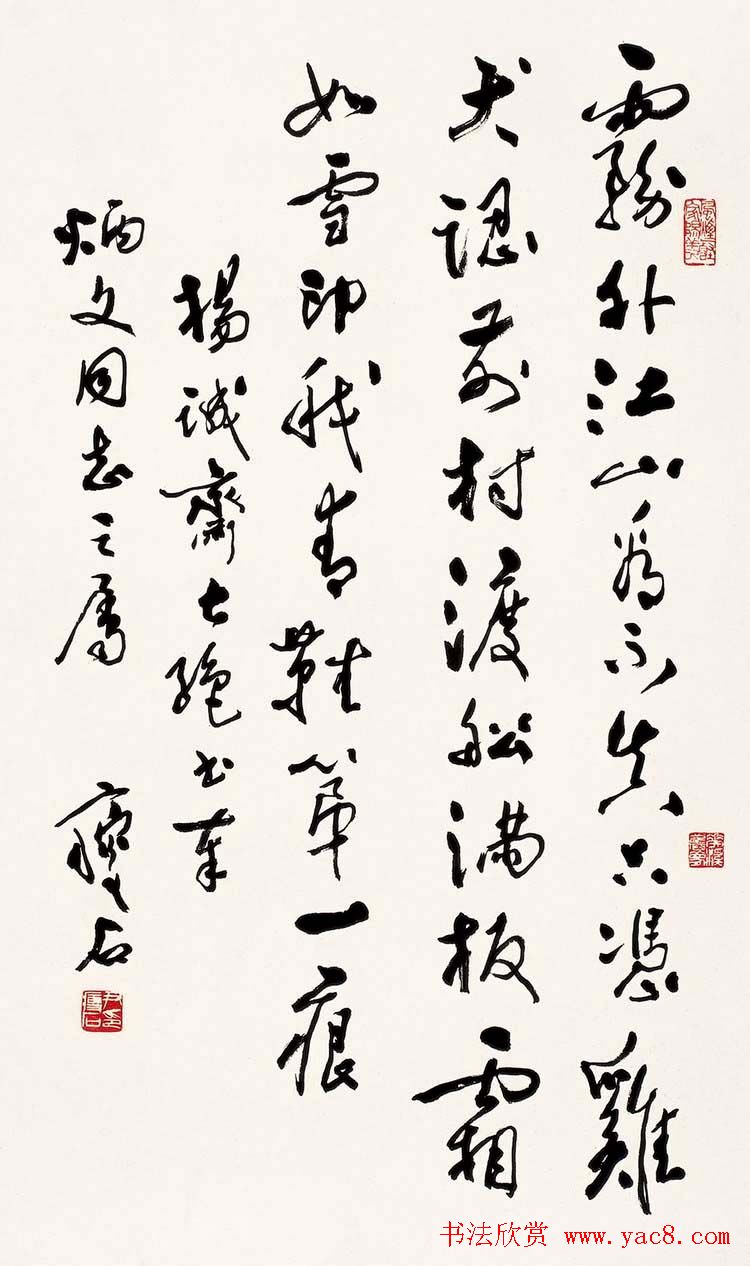 霧外江山看不真只憑雞
犬認前村渡船滿板霜
如雪印我青鞋第一痕
楊誠齋七絕書奉
炳文同志之屬 瘦石
书法欣赏 www.yac8.com